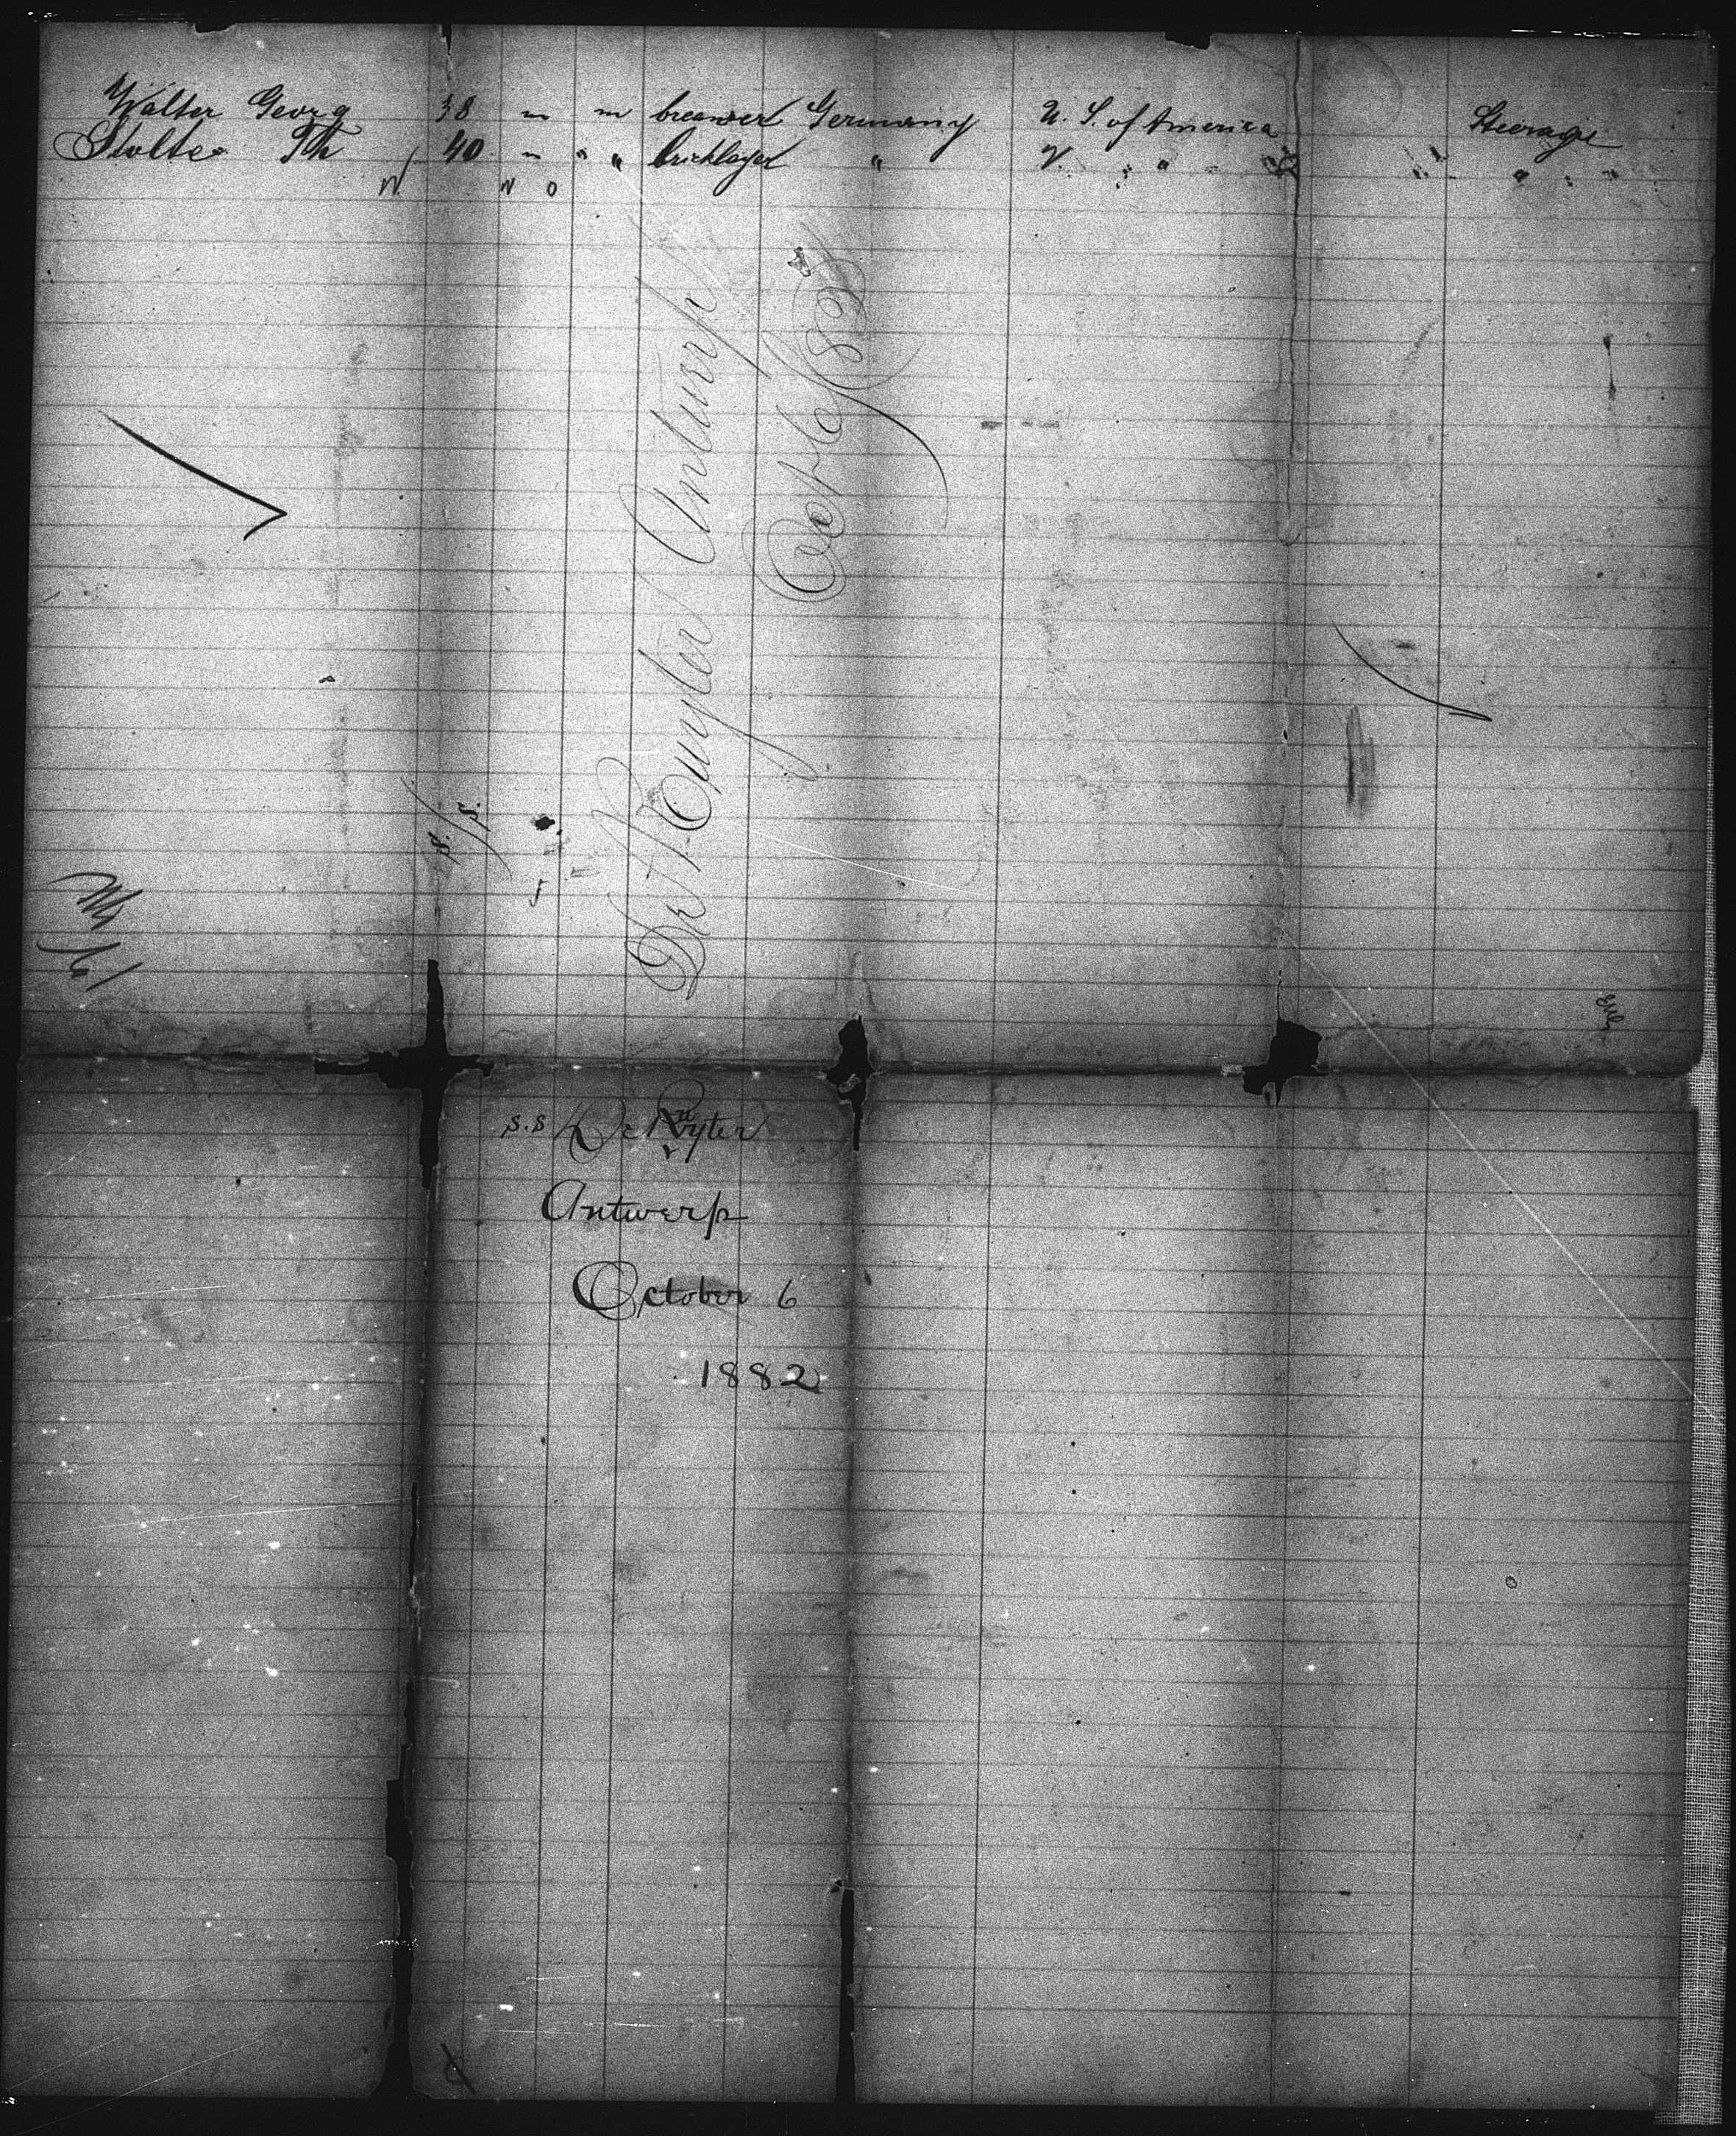 Walter Georg 38 m m brewer Germany U. S. of America Steerage
Stolte Th 40 " " " bricklayer " " " "
N N O
De Ruyter Antwerp
Oct 6 / 82
S. / S.
s.s De Ruyter
Antwerp
October 6
1882